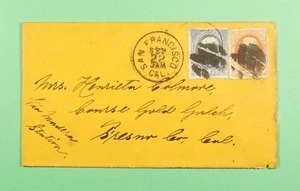 SAN FRANCISCO
SEP
22
3 AM
CAL.
Mrs. Henrietta Colmore,
Course Gold Gulch,
Fresno Co. Cal.
Via Madera
Station.